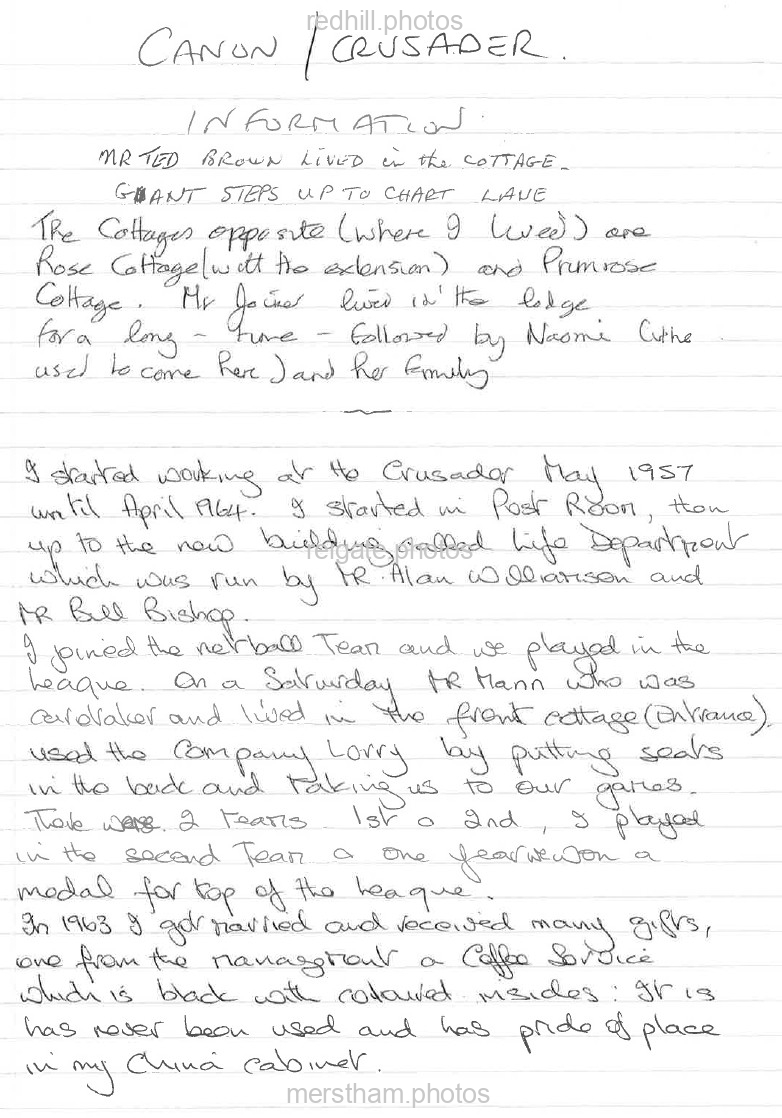 redhill.photos
CANON / CRUSADER.
INFORMATION.
MR TED BROWN LIVED in the COTTAGE.
GIANT STEPS UP TO CHART LANE
The Cottages opposite (where I lived) are
Rose Cottage (with the extension) and Primrose
Cottage. Mr Joiner lived in the lodge
for a long - time - followed by Naomi (who
used to come here) and her family
I started working at the Crusador May 1957
until April 1964. I started in Post Room, then
up to the new building called Life Department
reigate.photos
which was run by MR. Alan Williamson and
MR Bill Bishop.
I joined the netball Team and we played in the
league. On a Saturday MR Mann who was
caretaker and lived in the front cottage (Entrance)
used the Company Lorry by putting seats
in the back and taking us to our games.
There were 2 teams 1st & 2nd, I played
in the second Team & one year we won a
medal for top of the league.
In 1963 I got married and received many gifts,
one from the management a Coffee Service
which is black with coloured insides: It is
has never been used and has pride of place
in my China cabinet.
merstham.photos